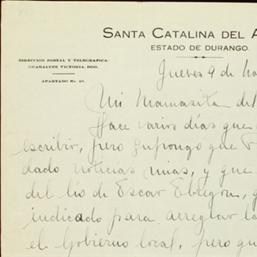 SANTA CATALINA DEL A
ESTADO DE DURANGO.
DIRECCION POSTAL Y TELEGRAFICA:
GUADALUPE VICTORIA, DGO.
APARTADO No.
Jueves 9 de
Mi Mamasita del
Hace varios días que
escribir, pero supongo que
dado noticias mias, y que
del lío de Escar Obregón, y
indicado para arreglar la
el Gobierno local, pero qu